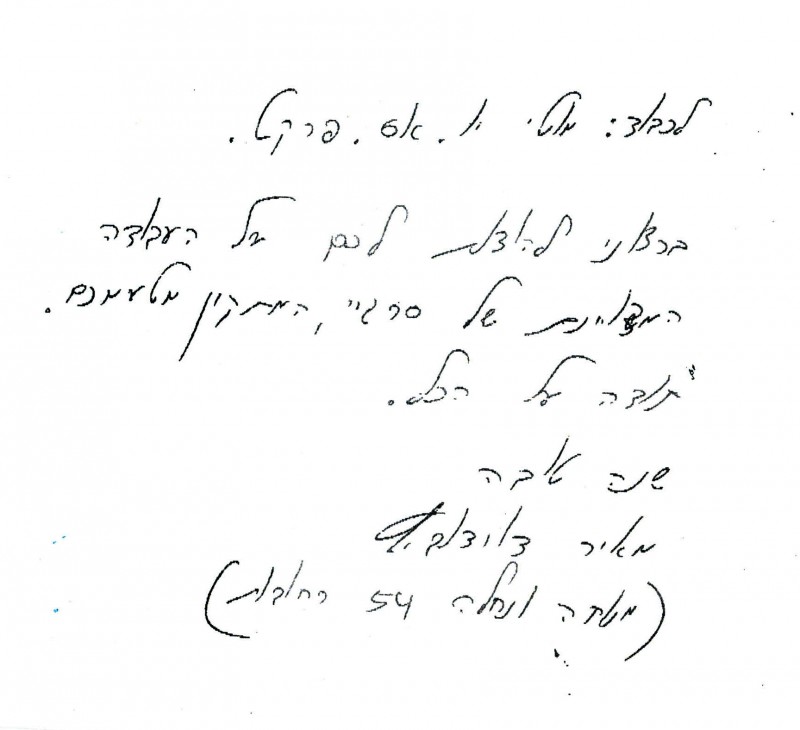 לכבוד: מוטי י.א. אס. פרקט.
ברצוני להודות לכם על העבודה
המצויינת של סרגיי, המתקין מטעמכם.
תודה על הכל.
שנה טובה
מאיר דוידוביץ
(מנוחה ונחלה 54 רחובות)